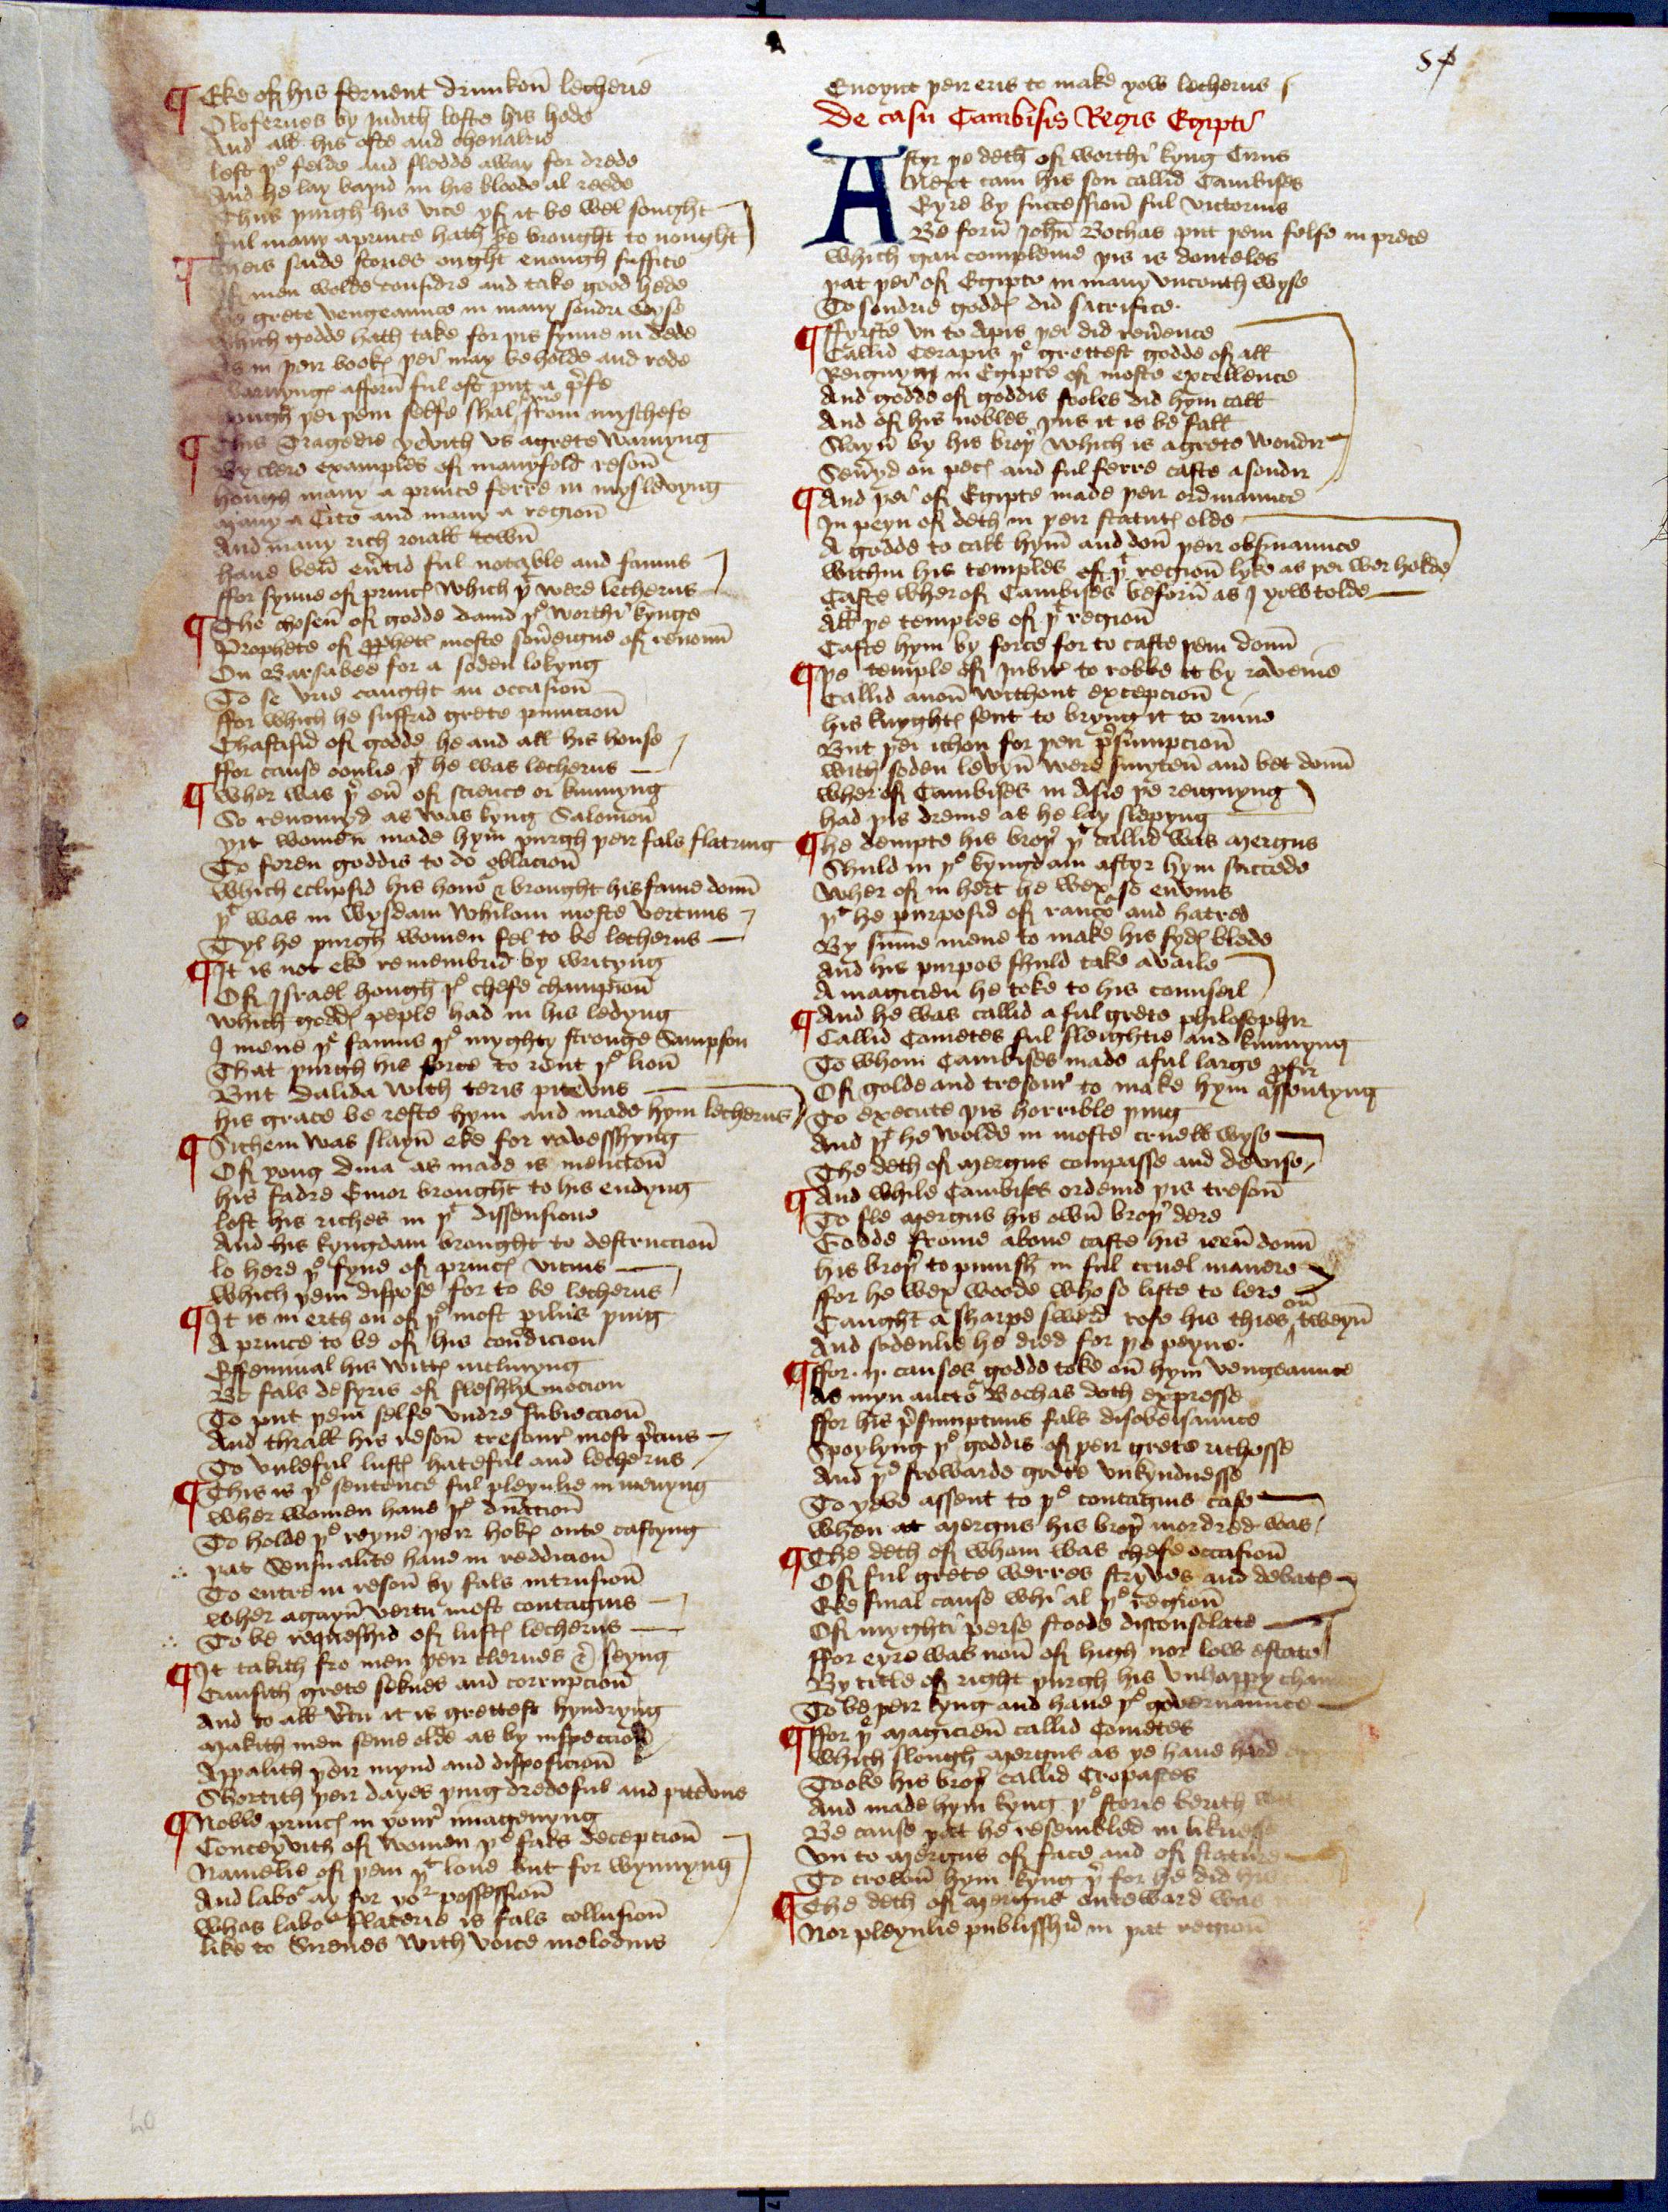 ¶ Eke of his feruent drunkon̄ lecherie
Olofernes by Judith loste his hede
And all his oste and cheualrie
left þe felde and fledde away for drede
And he lay bayid in his bloode al reede
Thus þurgh his vice yf it be wel sought
ful many a prince hath be brought to nought
¶ Theis saide stories ouȝht enough suffice
yf men wolde considre and take good hede
þe grete vengeaunce in many sondri wyse
which godde hath take for þis synne in dede
As in þeir bookꝭ þei may beholde and rede
warnyngꝭ aforn̄ ful oft put a p̄fe
þurgh þei þem selfe shal saue from myschefe
¶ This Tragedie yevith vs a grete warnyng
By clere examples of manyfold reson̄
hough many a prince ferre in myslevyng
Many a Cite and many a region̄
And many rich roiall town̄
haue ben̄ eu̓tid ful notable and famus
ffor synne of princꝭ which þt were lecherus
¶ The chosen̄ of godde Dauid þe worthi kynge
Prophete of ꝓphetꝭ moste sou̓eigne of renoun̄
On Barsabee for a soden lokyng
To se vrie caught an occasion̄
ffor which he suffrid grete punicion̄
Chastisid of godde he and all his house
ffor cause oonlie þt he was lecherus
¶ Wher was þer eu̓ of science or kunnyng
So renoumyd as was kyng Salomon̄
yit women made hym þurgh þeir fals flatring
To foren goddis to do oblacion̄
which eclipsid his honor & brought his fame doun̄
þt was in wysdam whilom moste vertuus
Tyl he þurgh women fel to be lecherus
¶ It is not eke remembrid by writyng
Of Israel hough þe chefe champion̄
which goddꝭ peple had in his ledyng
I mene þe famus þe myghty stronge Sampson
That þurgh his force to rent þe lion̄
But Dalida with teris pitevus
his grace be refte hym and made hym lecherus
¶ Sichem was slayn̄ eke for ravesshyng
Of yong Dina as made is mencion̄
his fadre Emor brought to his endyng
lost his riches in þt dissensioun
And his kyngdam brought to destruccion̄
lo here þe fyne of princꝭ vicius
which þem dispose for to be lecherus
¶ It is in erth on of þe most pilus þing
A prince to be of his condicion
Effeminal his wittꝭ inclinyng
Be fals desyris of fleshly mocion
To put þem selfe vndre subieccion̄
And thrall his reson̄ tresour most p̄cius
To vnleful lustꝭ hateful and lecherus
¶ This is þe sentence ful pleynlie in menyng
wher women haue þe dn̄accion̄
To holde þe reyne þeir hokꝭ oute castyng
∴ þat Sensualite haue in reddicion̄
To entre in reson̄ by fals intrusion̄
wher agayn̄ vertu most contagius
∴ To be reqneshid of lustꝭ lecherus
¶ It takith fro men þeir clernes & seyng
Causith grete seknes and corrupcion̄
And to all v̓tu it is grettest hyndryng
Makith men seme olde as by inspeccion̄
Appalith þeir mynd and disposicion̄
Shortith þeir dayes þing dredeful and pitevus
¶ Noble princꝭ in your imagenyng
Conceyvith of women þe fals decepcion̄
Namelie of þem þt loue but for wynnyng
And labor ay for yor possession̄
Whas labor flaterie is fals collusion̄
like to Sirenes with voice melodius
Enoynt þeir eris to make yow lecherus
De casu Cambisis Regis Egipti
Aftyr þe deth of worthi kyng Cirus
Next cam his son callid Cambises
Eyre by succession̄ ful victorius
Be forn̄ John̄ Bochas put þem selfe in prece
which gan compleine þis is douteles
þat þei of Egipte in many vncouth wyse
To sondrie goddꝭ did sacrifice.
¶ ffyrste vn to Apis þei did reu̓ence
Callid Cerapis þe grettest godde of all
Reignyng in Egipte of moste excellence
And godde of goddis fooles did hym call
And of his nobles þus it is be fall
Slayn̄ by his broþ̓ which is a grete wondir
Seu̓yd on pecꝭ and ful ferre caste a sondir
¶ And þei of Egipte made þeir ordinaunce
In peyn of deth in þeir statutꝭ olde
A godde to call hym̄ and don̄ þeir obs̓uaunce
within his temples of þt region̄ lyke as þei wer holde
Caste wherof Cambises beforn̄ as I yow tolde
All þe temples of þt region̄
Caste hym by force for to caste þem doun̄
¶ þe temple of Jubit̓ to robbe it by ravenie
Callid anon̄ without excepcion̄
his knyghtꝭ sent to bryng it to ruine
But þei ichon for þeir p̄sumpcion̄
with soden levyn̄ were smyten̄ and bet doun̄
wher of Cambises in Asie þe reignyng
had þis dreme as he lay slepyng
¶ he dempte his broþ̓ þt callid was Mergus
Shuld in þe kyngdam aftyr hym succede
wher of in hert he wex so envius
þt he purposid of rancor and hatred
By summe mene to make his sydꝭ blede
And his purpos shuld take availe
A magicien he toke to his counseil
¶ And he was callid a ful grete philosophir
Callid Cometes ful sleightie and kunnyng
To whom Cambises made a ful large ꝓfir
Of golde and tresour to make hym assentyng
To execute þis horrible þing
And þt he wolde in moste cruell wyse
The deth of Mergus compasse and devise
¶ And while Cambises ordenid þis treson̄
To sle Mergus his own̄ broþ̓ dere
Godde frome aboue caste his ieen̄ doun̄
his broþ̓ to punish in ful cruel manere
ffor he wex woode who so liste to lere
Caught a sharpe swerd rofe his thies on̄ tweyn̄
And sodenlie he died for þe peyne.
¶ ffor .ij. causes godde toke on̄ hym vengeaunce
As myn auctor Bochas doth expresse
ffor his p̄sumptuus fals disobeisaunce
Spoylyng þe goddis of þeir grete richesse
And þe frowarde grete vnkyndnesse
To yeve assent to þe contagius case
when at Mergus his broþ̓ mordred was
¶ The deth of whom was chefe occasion̄
Of ful grete werres stryves and debate
Eke final cause whi al þe region̄
Of myghti perse stoode disconsolate
ffor eyre was non̄ of high nor low estate
By title of right þurgh his vnhappy chan
To be þeir kyng and haue þe governaunce
¶ ffor þe Magicien̄ callid Cometes
which slough Mergus as ye haue hard
Tooke his broþ̓ callid Cropastes
And made hym kyng þe storie berith wit
Be cause þat he resembled in liknesse
Vn to Mergus of face and of stature
To crown̄ hym kyng þ̓ for he did his
¶ The deth of Mergus outeward was
Nor pleynlie publisshid in þat region̄
40